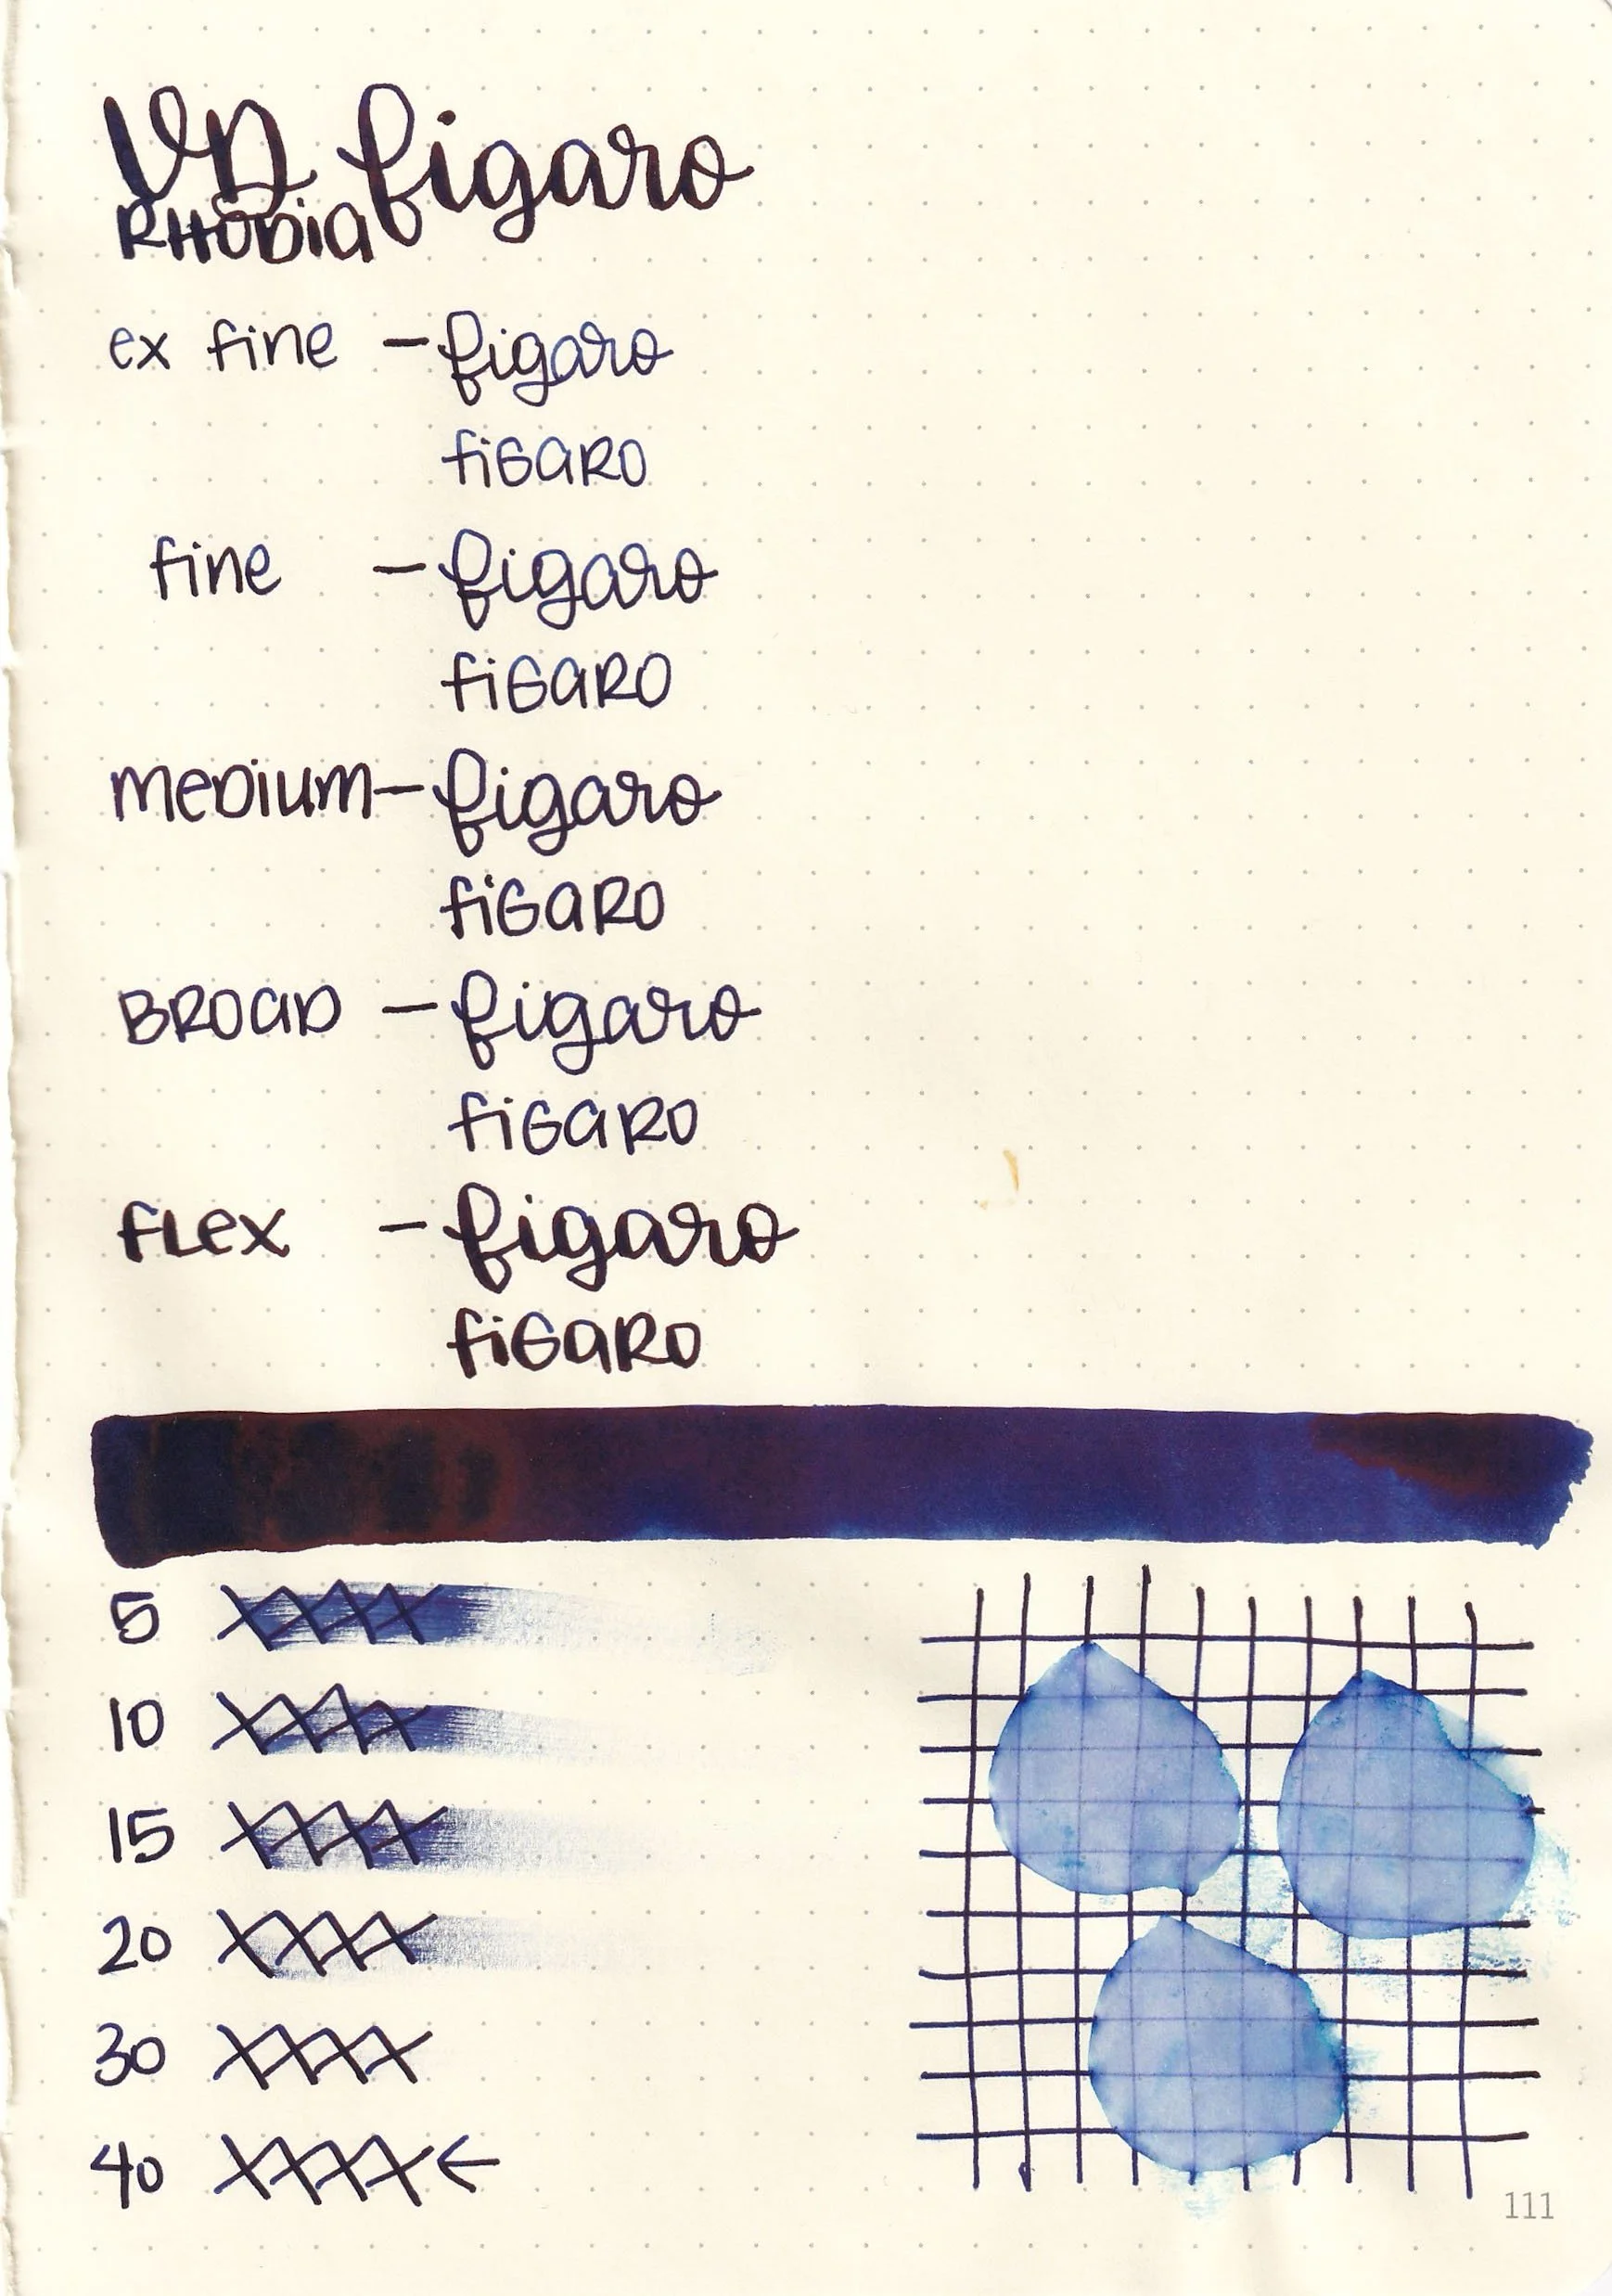 VD figaro
RHODIA
ex fine - figaro
fiGaRO
fine - figaro
fiGaRO
meDium - figaro
fiGaRO
BROaD - figaro
fiGaRO
fLex - figaro
fiGaRO
5 XXXX
10 XXXX
15 XXXX
20 XXXX
30 XXXX
40 XXXX ←
111